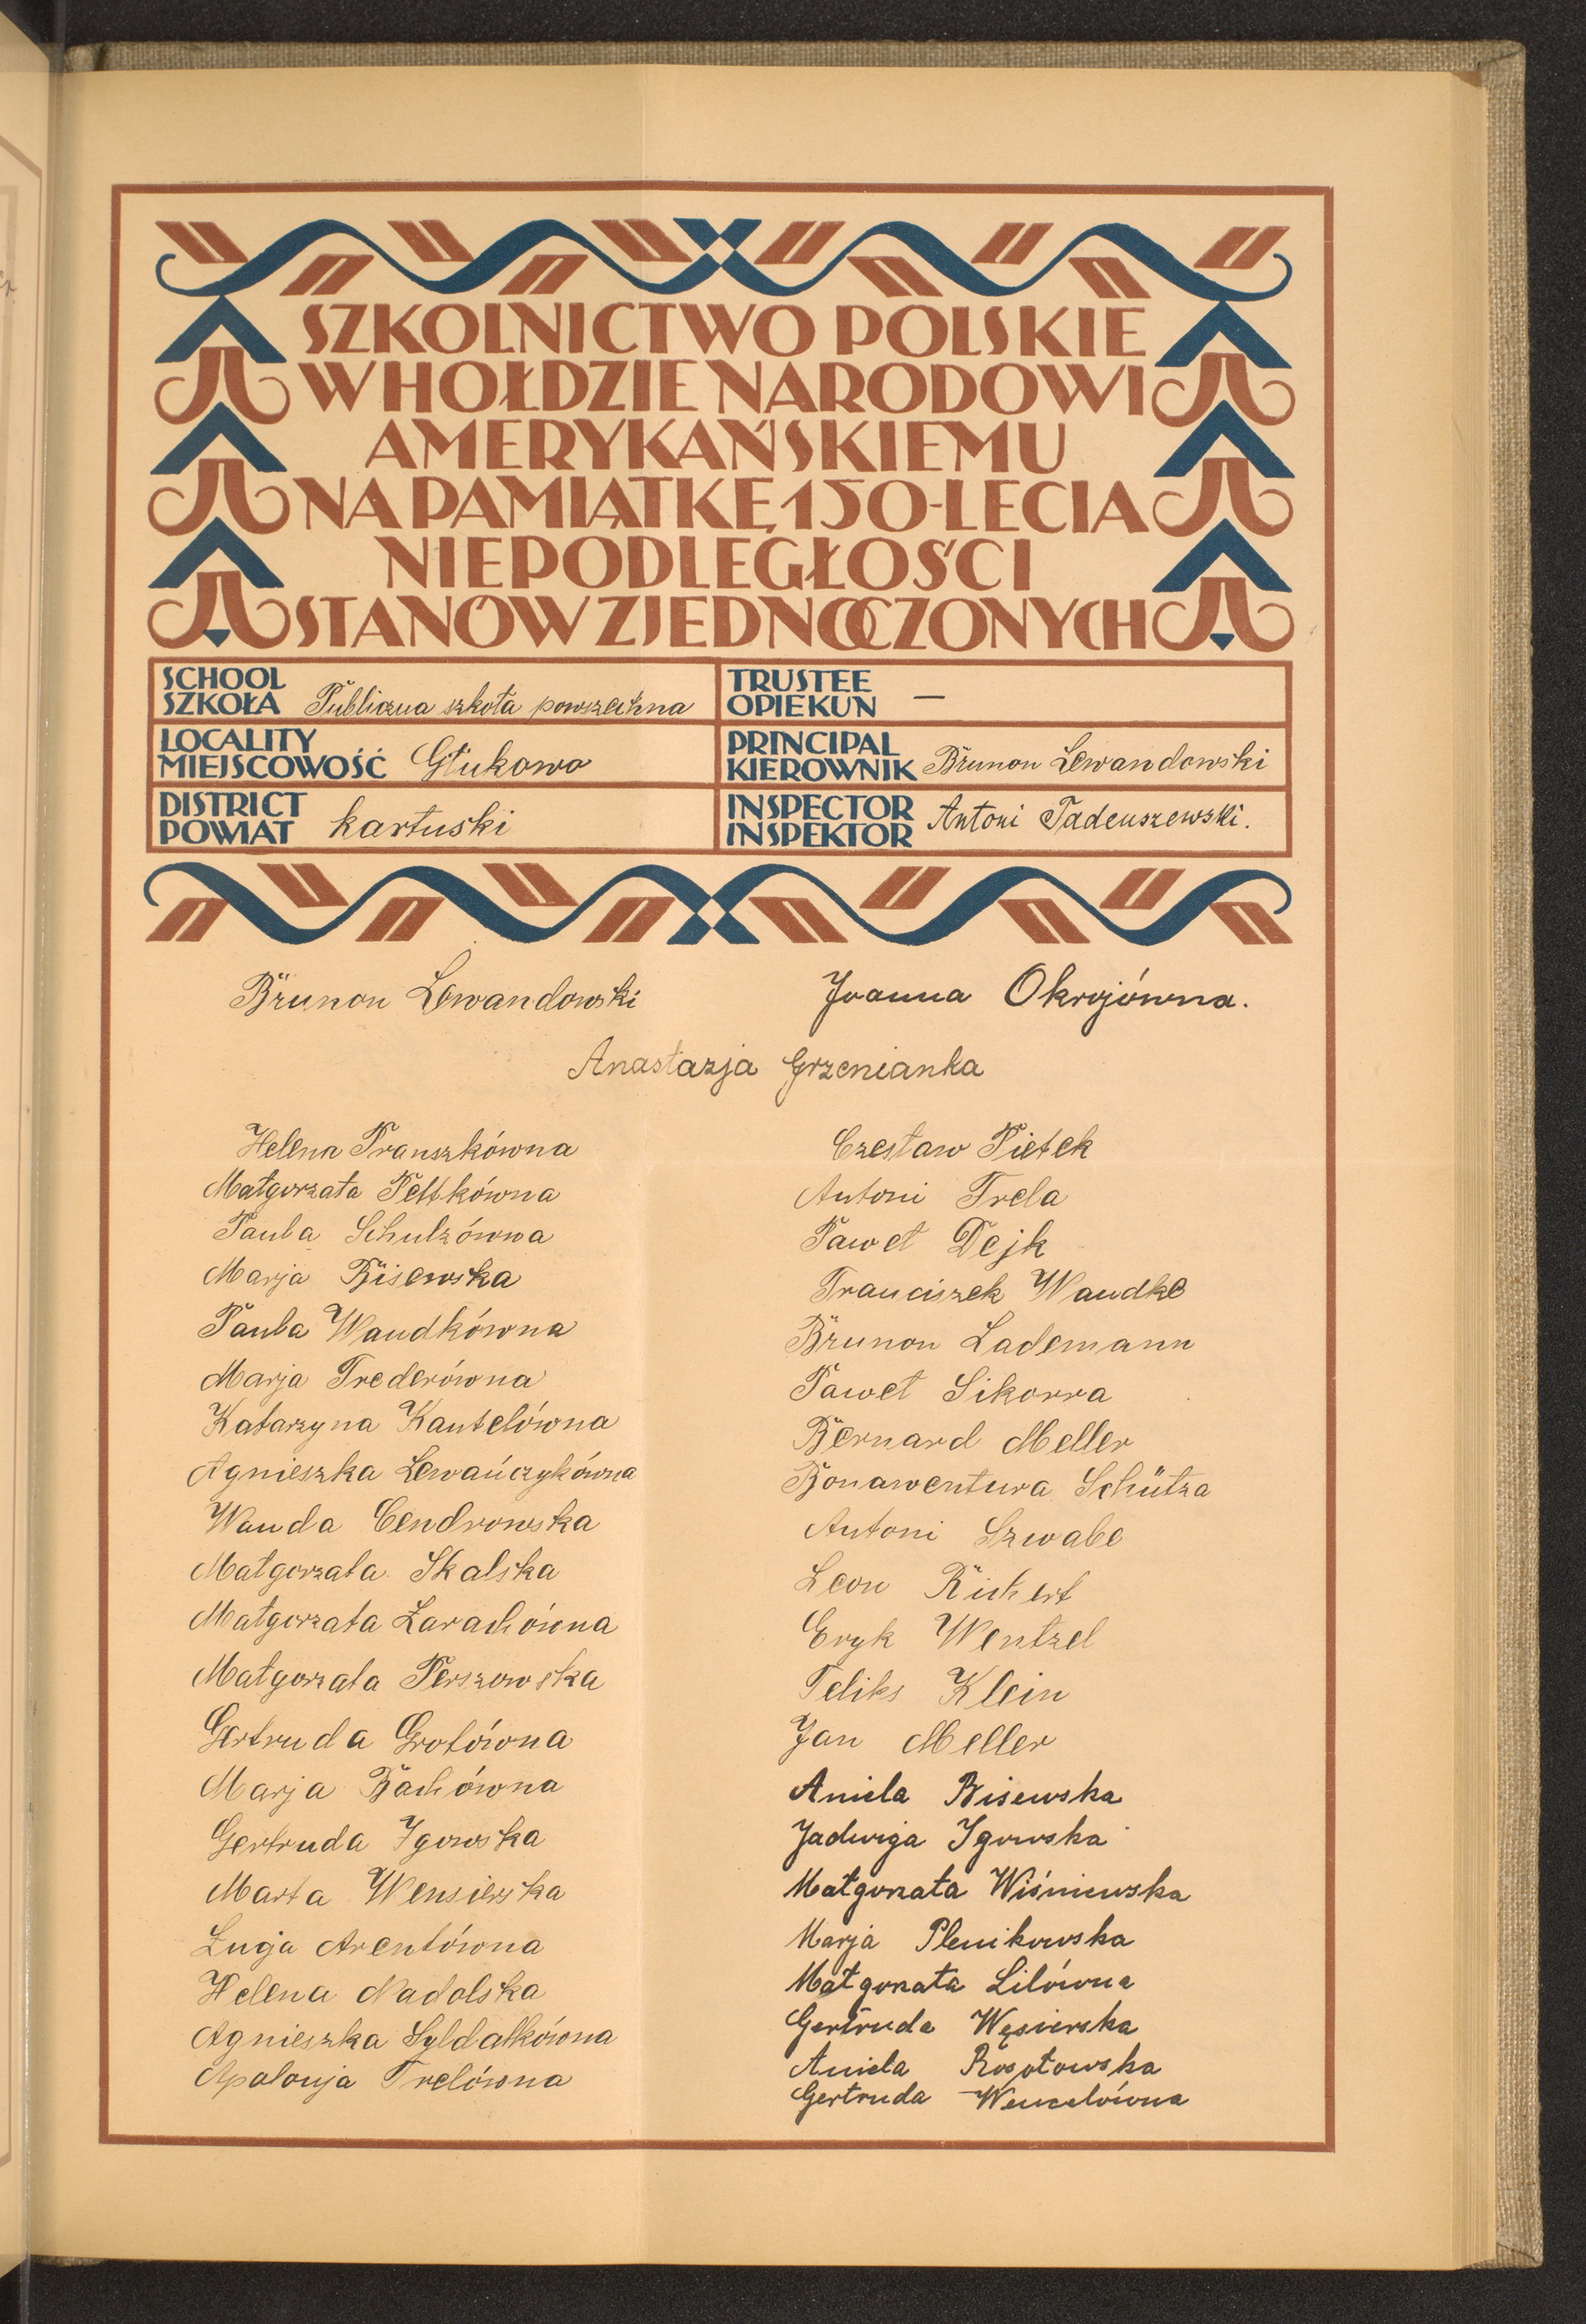 SZKOLNICTWO POLSKIE
W HOŁDZIE NARODOWI
AMERYKAŃSKIEMU
NA PAMIĄTKĘ 150-LECIA
NIEPODLEGŁOŚCI
STANÓW ZJEDNOCZONYCH
SCHOOL
SZKOŁA Publiczna szkoła powszechna
TRUSTEE
OPIEKUN —
LOCALITY
MIEJSCOWOŚĆ Głukowo
PRINCIPAL
KIEROWNIK Brunon Lewandowski
DISTRICT
POWIAT kartuski
INSPECTOR
INSPEKTOR Antoni Tadeuszewski.
Brunon Lewandowski
Joanna Okrojówna.
Anastazja Grzenianka
Helena Franszkówna
Małgorzata Peltkówna
Paula Schulzówna
Marja Bisewska
Paula Waudkówna
Marja Trederówna
Katarzyna Kautelówna
Agnieszka Lewańczykówna
Wanda Cendrowska
Małgorzata Skalska
Małgorzata Zarachówna
Małgorzata Perszowska
Gertruda Grotówna
Marja Bachówna
Gertruda Igowska
Marta Wensierska
Luzja Arentówna
Helena Nadolska
Agnieszka Syldatkówna
Apolonja Trelówna
Czesław Pietek
Antoni Trela
Paweł Dejk
Franciszek Waudke
Brunon Lademann
Paweł Sikorra
Bernard Meller
Bonawentura Schütza
Antoni Szwabe
Leon Richert
Eryk Wentzel
Feliks Klein
Jan Meller
Aniela Bisewska
Jadwiga Igowska
Małgorzata Wiśniewska
Marja Plenikowska
Małgorzata Lilówna
Gertruda Węsierska
Aniela Rosołowska
Gertruda Wencelówna